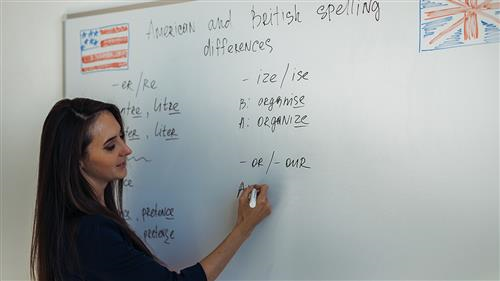 American and British spelling
differences
-er/re
litre
liter
, pretence
pretense
- ize/ise
B: organise
A: organize
- or/-our
A